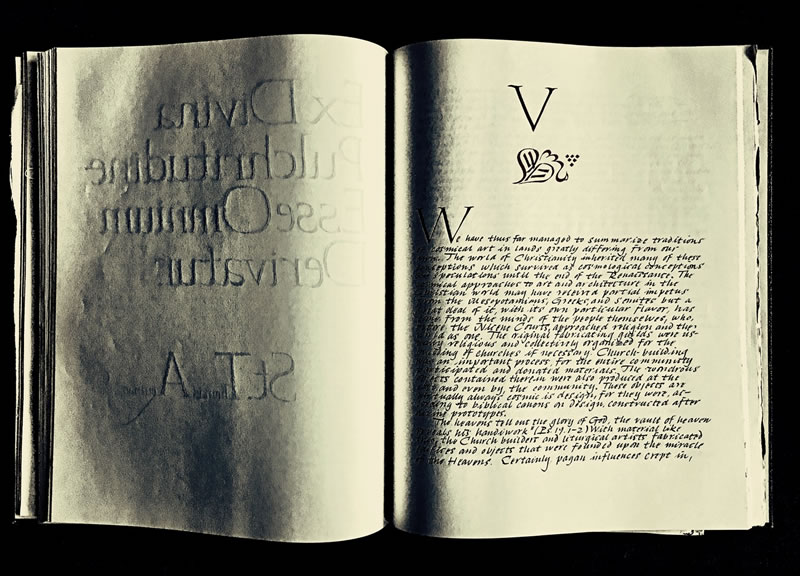 Ex Divina
Pulchritudine
Esse Omnium
Derivatur
St. T. A
V
We have thus far managed to summarize traditions
cosmical art in lands greatly differing from our
The world of Christianity inherited many of these
which survived as cosmological conceptions
speculations until the end of the Renaissance. The
approaches to art and architecture in the
world may have received partial impetus
the Mesopotamians, Greeks, and Semites but a
deal of it, with its own particular flavor, has
from the minds of the people themselves, who,
the Nicene Courts, approached religion and the
as one. The original fabricating guilds were us-
religious and collectively organized for the
of churches if necessary. Church-building
important process for the entire community
and donated materials. The wondrous
contained therein were also produced at the
and even by the community. These objects are
always cosmic is design, for they were, ac-
to biblical canons on design, constructed after
prototypes.
The heavens tell out the glory of God, the vault of heaven
his handiwork" (Ps 19.1-2) With material like
the Church builders and liturgical artists fabricated
and objects that were founded upon the miracle
the Heavens. Certainly pagan influences crept in,